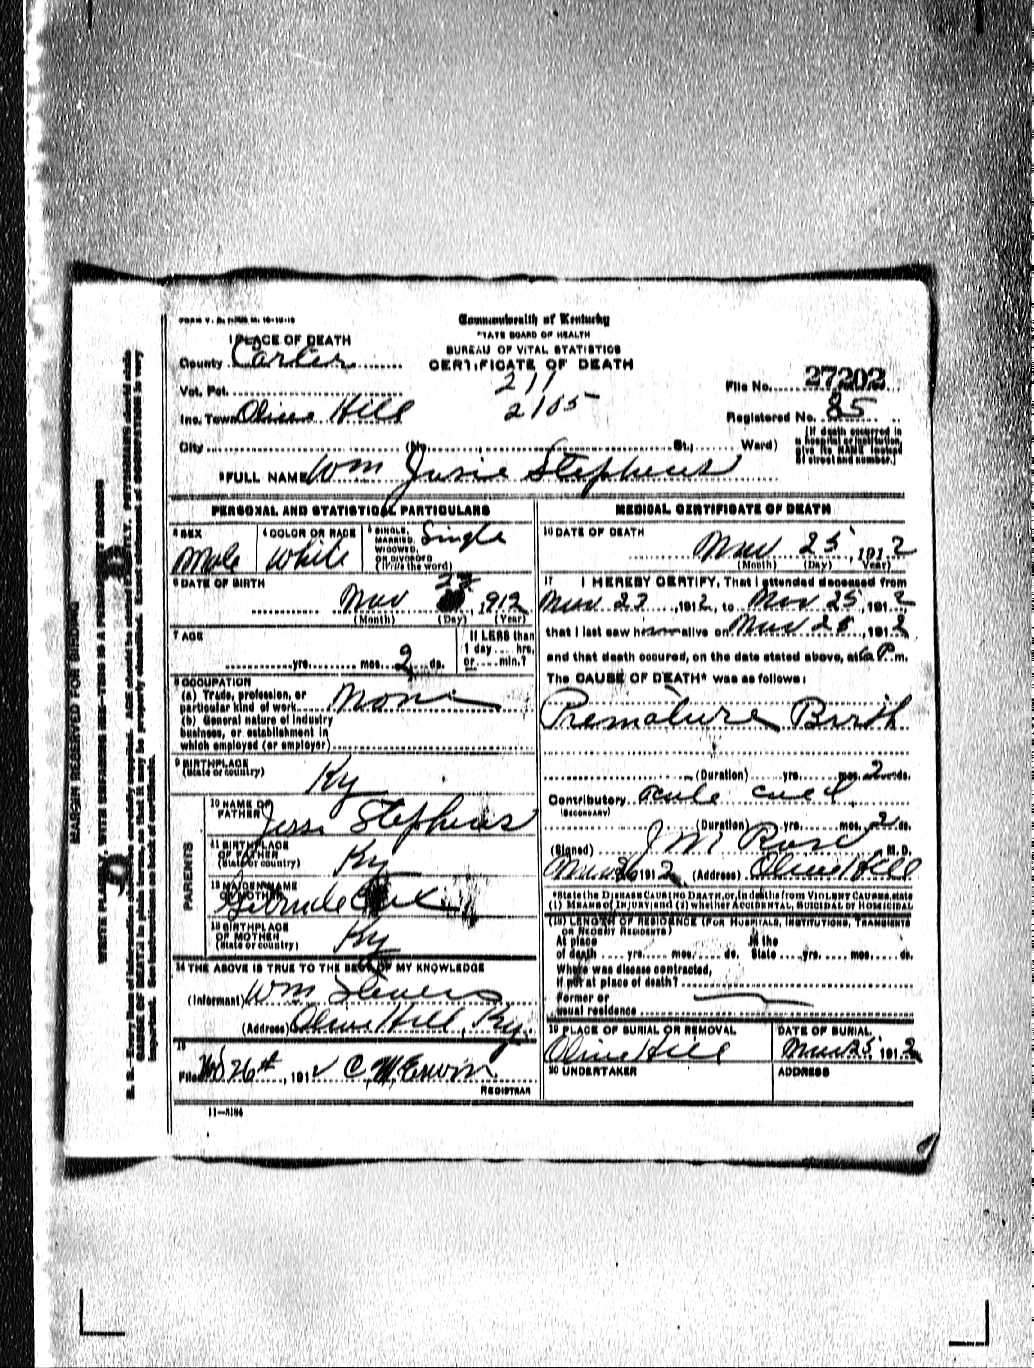 Commonwealth of Kentucky
STATE BOARD OF HEALTH
BUREAU OF VITAL STATISTICS
CERTIFICATE OF DEATH
1 PLACE OF DEATH
County Carter
Vot. Pct.
Inc. Town Olive Hill
City (No. St., Ward)
211
2105
File No. 27202
Registered No. 85
(If death occurred in
a hospital or institution,
give its NAME instead
of street and number.)
2 FULL NAME Wm Jusie Stephens
PERSONAL AND STATISTICAL PARTICULARS
3 SEX
Male
4 COLOR OR RACE
White
5 SINGLE, MARRIED, WIDOWED, OR DIVORCED (Write the word)
Single
6 DATE OF BIRTH
Nov 23, 1912
(Month) (Day) (Year)
7 AGE
yrs. mos. 2 ds.
If LESS than
1 day hrs.
or min.?
8 OCCUPATION
(a) Trade, profession, or
particular kind of work None
(b) General nature of industry
business, or establishment in
which employed (or employer)
9 BIRTHPLACE
(State or country)
Ky
PARENTS
10 NAME OF FATHER Jess Stephens
11 BIRTHPLACE OF FATHER (State or country) Ky
12 MAIDEN NAME OF MOTHER Getrude
13 BIRTHPLACE OF MOTHER (State or country) Ky
14 THE ABOVE IS TRUE TO THE BEST OF MY KNOWLEDGE
(Informant) Wm Stevens
(Address) Olive Hill, Ky.
15
Filed Nov 26th, 1912 C. M. Erwin
REGISTRAR
11—3184
MEDICAL CERTIFICATE OF DEATH
16 DATE OF DEATH
Nov 25, 1912
(Month) (Day) (Year)
17 I HEREBY CERTIFY, That I attended deceased from
Nov 23, 1912, to Nov 25, 1912,
that I last saw him alive on Nov 25, 1912
and that death occured, on the date stated above, at 6 P.m.
The CAUSE OF DEATH* was as follows:
Premature Birth
(Duration) yrs. mos. 2 ds.
Contributory
(SECONDARY)
(Duration) yrs. mos. 2 ds.
(Signed) J M Rose M. D.
1912 (Address) Olive Hill
*State the DISEASE CAUSING DEATH, or, in deaths from VIOLENT CAUSES, state
(1) MEANS OF INJURY; and (2) whether ACCIDENTAL, SUICIDAL or HOMICIDAL
(18) LENGTH OF RESIDENCE (FOR HOSPITALS, INSTITUTIONS, TRANSIENTS
OR RECENT RESIDENTS)
At place In the
of death yrs. mos. ds. State yrs. mos. ds.
Where was disease contracted,
if not at place of death?
Former or
usual residence
19 PLACE OF BURIAL OR REMOVAL
Olive Hill
DATE OF BURIAL
Nov 25, 1912
20 UNDERTAKER
ADDRESS
MARGIN RESERVED FOR BINDING